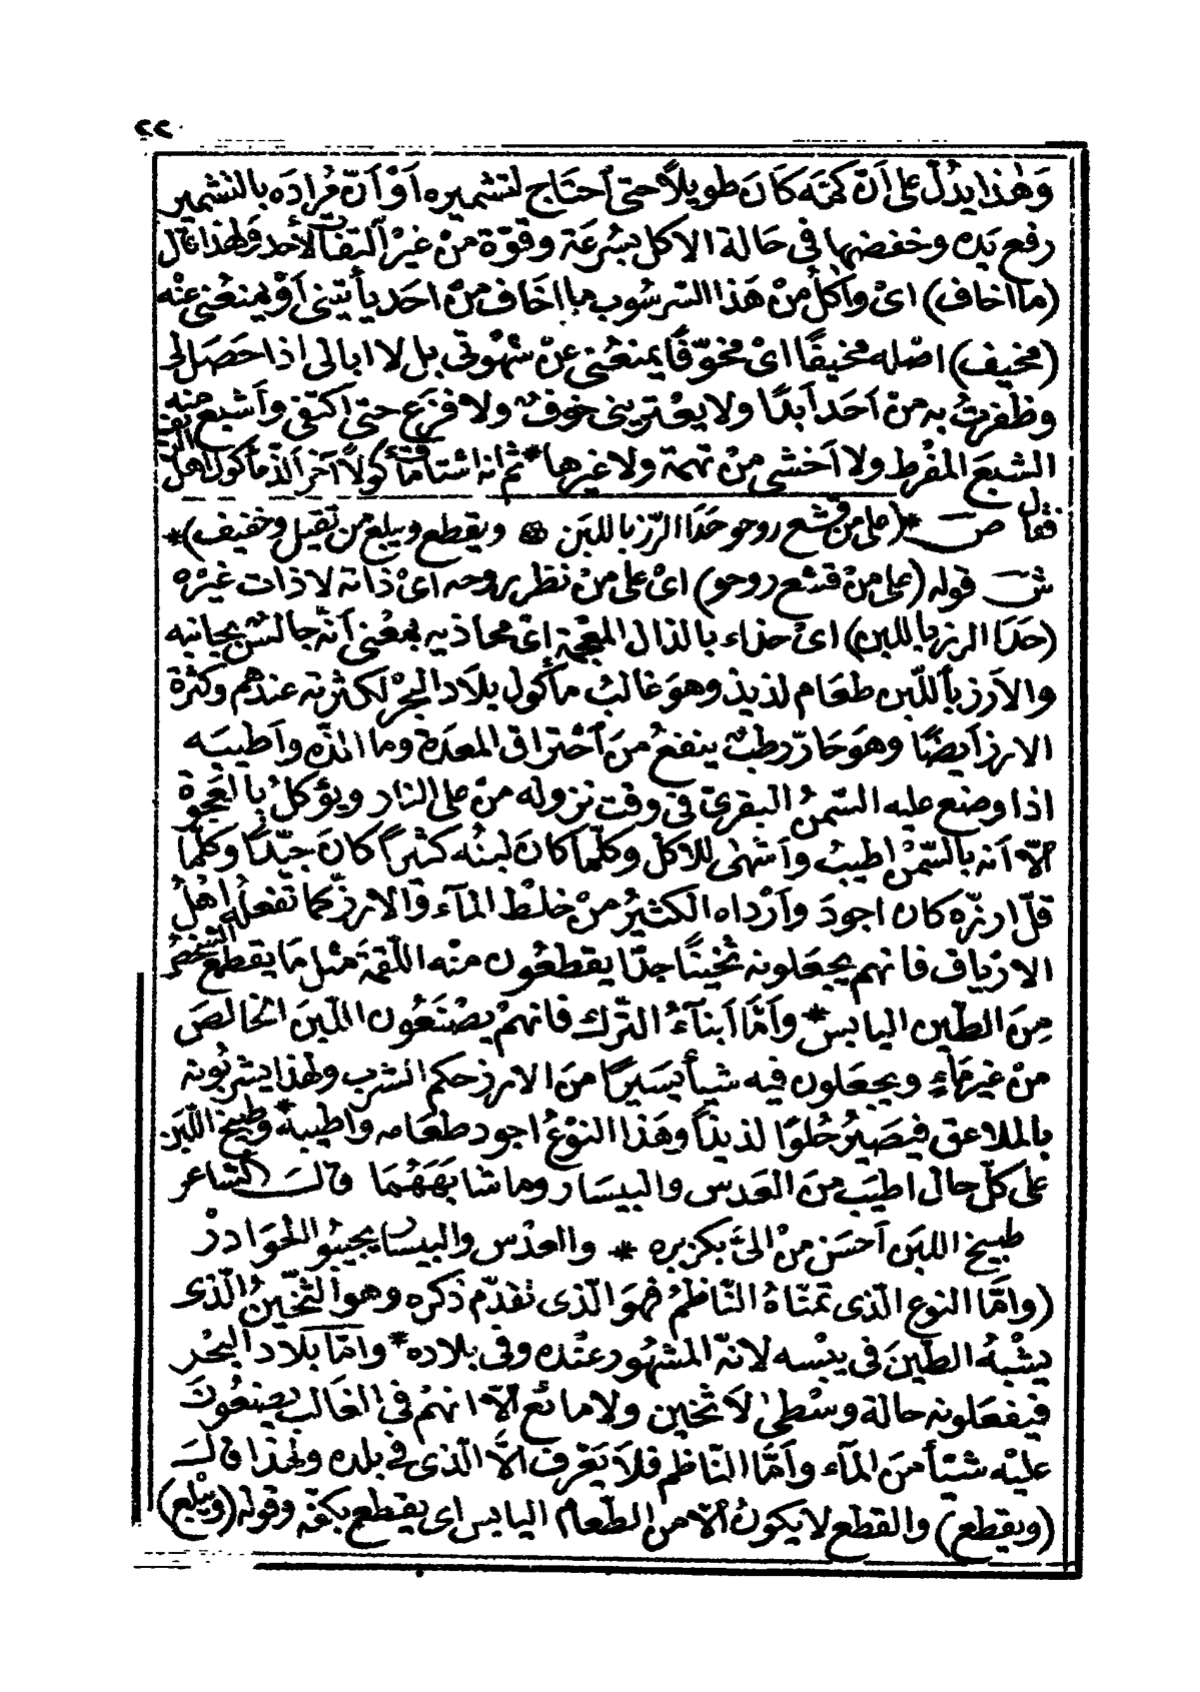 ٢٢
وَهٰذا يدُلّ على اَنّ كمّه كَانَ طويلاً حتى اَحتَاج لتشميره اَوْ اَنّ مُرادَه بالتشمير
رفع يَده وخفضها فى حَالة الاكل بسُرعَة وقوّة منْ غيْر اَلتفات لأحد ولهٰذا قال
(ما اخاف) اىْ وآكُل منْ هَذا الترسُوب ما اخَاف منْ احَد يأتينى اَوْ يمنعُنى عنْه
(مخيف) اصْله مخيفًا اىْ مخوّفًا يمنعُنى عنْ شهْوتى بل لا ابالى اذا حَصَل لى
وظفرتُ به منْ اَحَد اَبدًا ولا يعْترينى خوفٌ ولا فزَع حتى اكتفى واَشبع منه
الشبعَ المفْرط ولا اَخشى منْ تهمة ولا غيرها * ثم انه اشتاق مأكولاً آخر الذّ مأكول اهل الريف
فقال صـ * (على من قشع روحو حَدَا الرّز باللبَن ۞ ويقطع ويبلع من تقيل وخفيف) *
شـ قوله (على منْ قشع روحو) اىْ على منْ نظر بروحه اىْ ذاته لا ذات غيْره
(حَدَا الرز باللبن) اىْ حذاء بالذال المعْجمة اىْ محاذيه بمعْنى اَنّه جالسٌ بجانبه
والاَرز باَللّبن طعَام لذيذ وهوَ غالبُ مأكول بلاَد البحْر لكثرته عندهم وكثرة
الارز اَيضًا وهوَ حَارّ رطبٌ ينفعُ منَ اَحْتراق المعدَة وما الذّه واَطيبَه
اذا وضع عليه السّمنُ البقرىّ فى وقت نزوله منْ على النار ويؤكلُ بالعَجوة
اَلاّ اَنه بالسّمْن اطيبُ واَشهٰى للاكل وكلّما كان لبنُه كثيراً كانَ جيّدًا وكلّما
قلّ ارزّه كان اجودَ واَرْداه الكثيرُ منْ خلْط المآء والارزّ كما تفعلُه اهْلُ
الارْياف فانهم يجعَلونه ثخينًا جدّا يقطعُون منْه اللّقمة مثل مَا يقطع الشخصُ
مِنَ الطّين اليابس * واَمّا اَبنآءُ التّرك فانهمْ يصْنَعُون اللبنَ الخالصَ
منْ غيْر مآءٍ ويجعَلون فيه شيأ يسَيرًا منَ الارز حكم الشرب ولهٰذا يشربُونه
بالملاعق فيصَيرُ حُلوًا لذيذاً وهَذا النوْعُ اجود طعَامه واطيبه * وطبيخ اللّبَن
على كلّ حال اطيَب منَ العَدس والبيسَار وما شابهَهُمَا قالـَـ الشاعر
طبيخ اللبَن اَحسَن منْ الىّ بكزبره * والعدْس والبيسار يجيبُو اللّحوَادزْ
(واَمّا النوع الّذى تمنّاهُ النّاظمُ فهوَ الّذى تقدّم ذكره وهو الثّخينُ الّذى
يشْبهُ الطّينَ فى يبْسه لانّه المشْهُور عنْده وفى بلاده * واَمّا بلاد البحْر
فيفعَلونه حالة وسْطىٰ لاَ ثخين ولا مائع اَلاّ انهمْ فى الغَالب يصنعُونَ
عليْه شيئاً منَ المآء واَمّا النّاظم فلاَ يَعْرف الاَّ الّذى فى بلده ولهٰذا قالـَـ
(ويقطع) والقطع لا يكونُ اَلاّ من الطّعام اليابس اى يقطع بكفّه وقوله (ويبْلع)